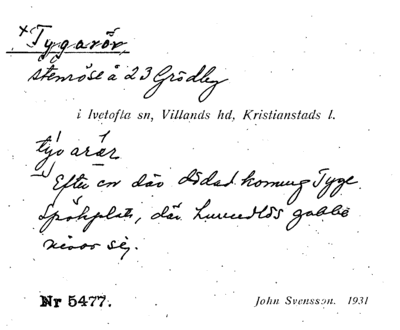 × Tygarör,
stenröse å 23 Grödby
i Ivetofta sn, Villands hd, Kristianstads l.
tývarǿr
Efter en där dödad konung Tyge.
Spökplats, där huvudlös gubbe
visar sig.
Nr 5477.
John Svensson. 1931